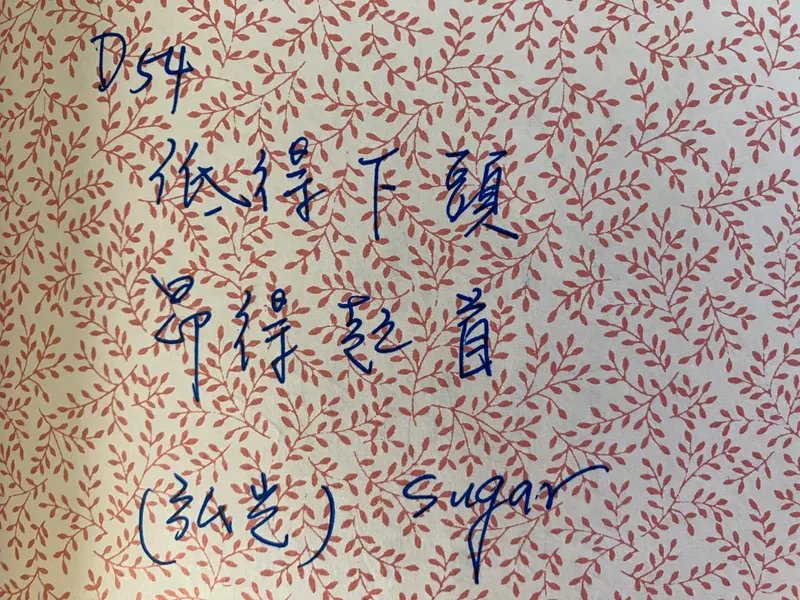 D54
低得下頭
昂得起首
(弘光) sugar